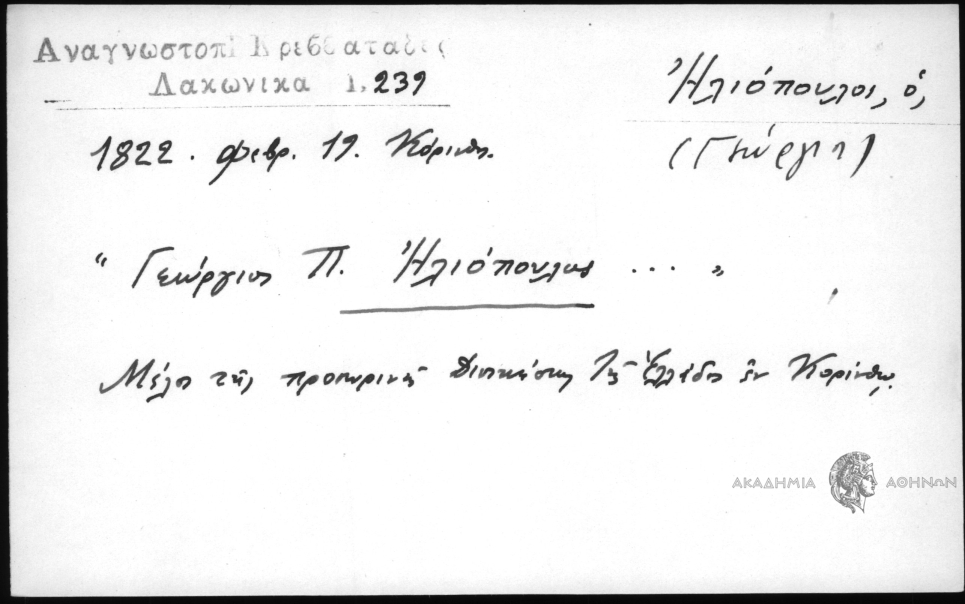 Αναγνωστοπ Κρεββαταδες
Λακωνικα 1. 239
Ἠλιόπουλος, ὁ,
(Γεώργιος)
1822. Φεβρ. 19. Κόρινθ.
"Γεώργιος Π. Ἠλιόπουλος ... "
Μέλος τῆς προσωρινῆς Διοικήσεως τῆς Ἑλλάδος ἐν Κορίνθῳ.
ΑΚΑΔΗΜΙΑ ΑΘΗΝΩΝ